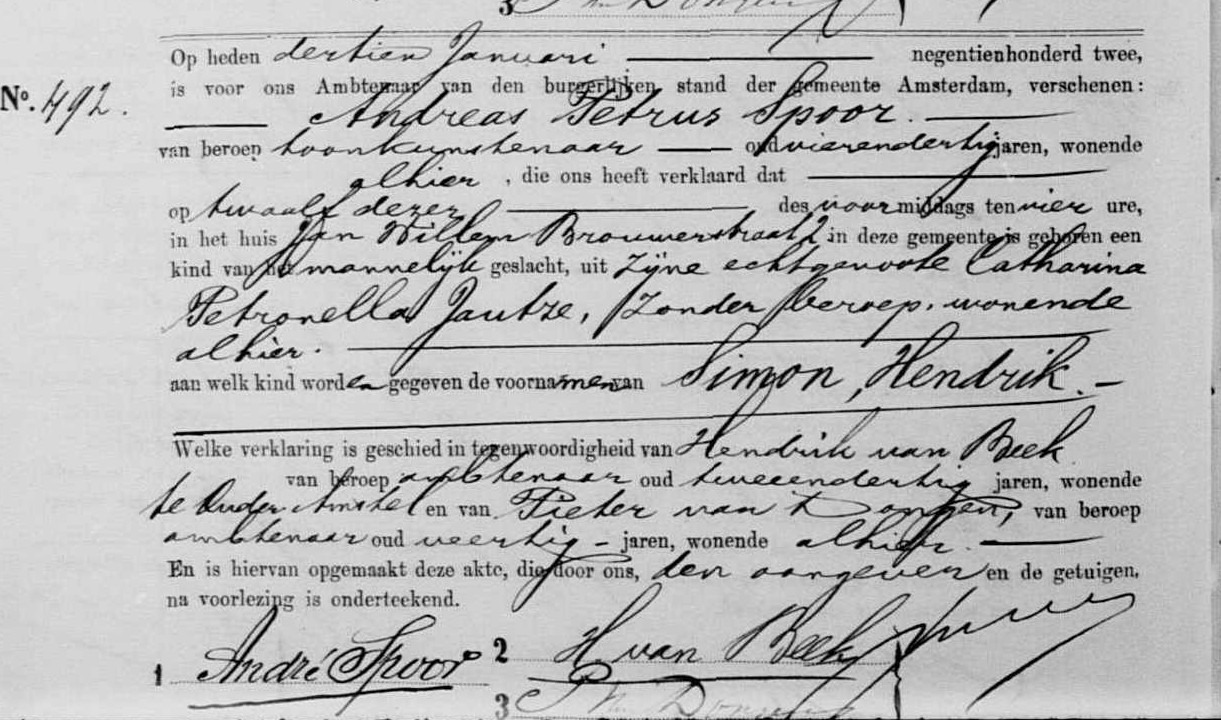 3
Op heden dertien Januari negentienhonderd twee,
No. 492. is voor ons Ambtenaar van den burgerlijken stand der gemeente Amsterdam, verschenen:
Andreas Petrus Spoor.
van beroep toonkunstenaar oud vierendertig jaren, wonende
alhier, die ons heeft verklaard dat
op twaalf dezer des voormiddags ten vier ure,
in het huis Jan Willem Brouwerstraat 2 in deze gemeente is geboren een
kind van het mannelijk geslacht, uit zijne echtgenoote Catharina
Petronella Jautze, zonder beroep, wonende
alhier.
aan welk kind worden gegeven de voornamen van Simon, Hendrik.
Welke verklaring is geschied in tegenwoordigheid van Hendrik van Beek
van beroep ambtenaar oud tweeendertig jaren, wonende
te Ouder Amstel en van Pieter van Dongen, van beroep
ambtenaar oud veertig jaren, wonende alhier.
En is hiervan opgemaakt deze akte, die door ons, den aangever en de getuigen,
na voorlezing is onderteekend.
1 André Spoor 2 H van Beek
3 P. van Dongen